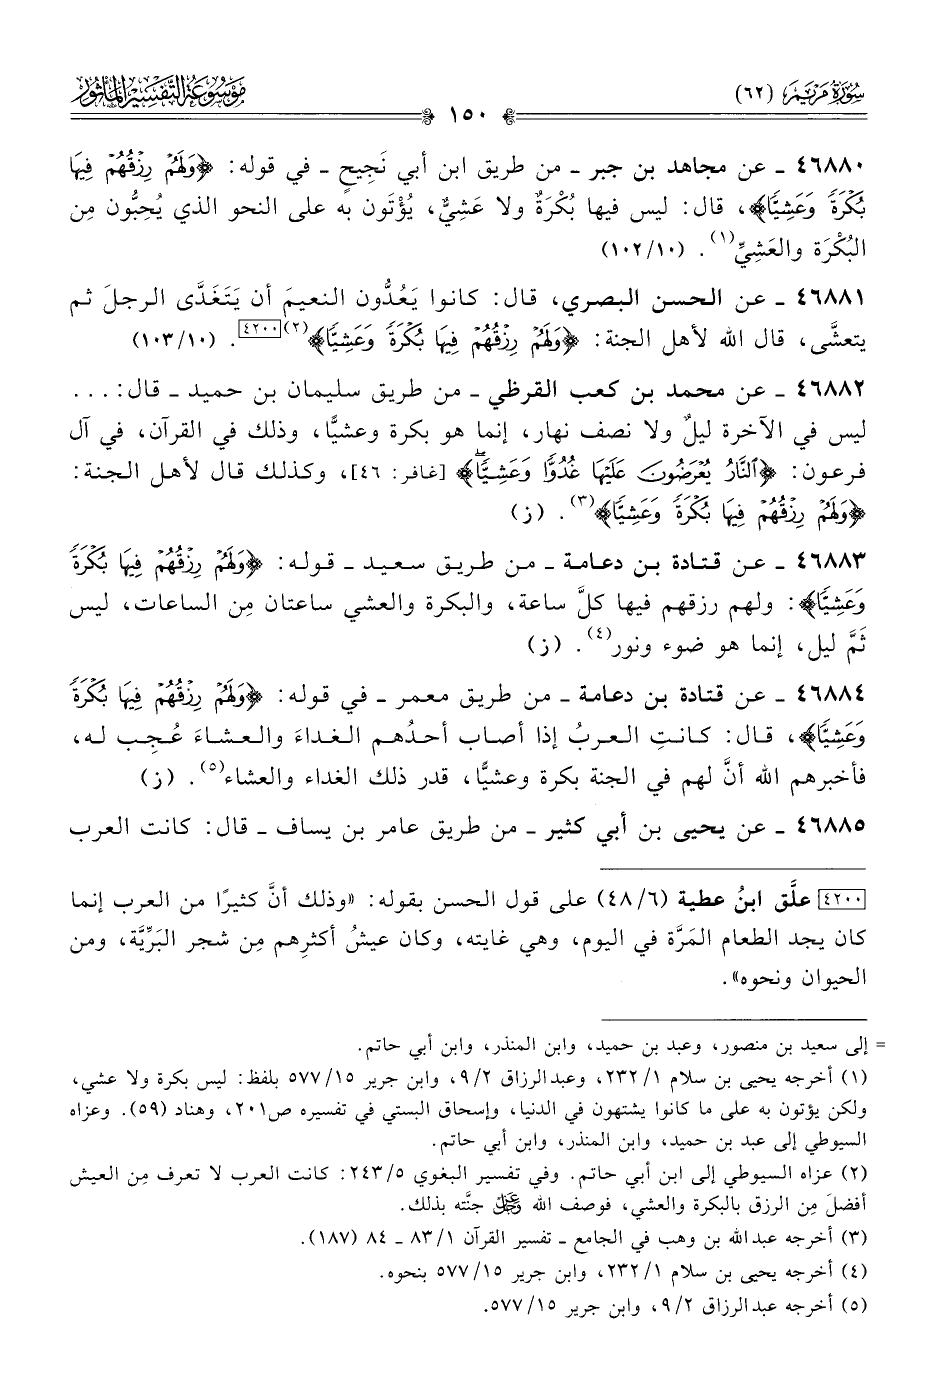 سورة مريم (٦٢)
١٥٠
موسوعة التفسير المأثور
٤٦٨٨٠ ـ عن مجاهد بن جبر ـ من طريق ابن أبي نَجِيحٍ ـ في قوله: ﴿وَلَهُمْ رِزْقُهُمْ فِيهَا
بُكْرَةً وَعَشِيًّا﴾، قال: ليس فيها بُكْرَةٌ ولا عَشِيٌّ، يُؤْتَون به على النحو الذي يُحِبُّون مِن
البُكْرَة والعَشِيِّ(١). (١٠٢/١٠)
٤٦٨٨١ ـ عن الحسن البصري، قال: كانوا يَعُدُّون النعيمَ أن يَتَغَدَّى الرجلَ ثم
يتعشَّى، قال الله لأهل الجنة: ﴿وَلَهُمْ رِزْقُهُمْ فِيهَا بُكْرَةً وَعَشِيًّا﴾(٢)[٤٢٠٠]. (١٠٣/١٠)
٤٦٨٨٢ ـ عن محمد بن كعب القرظي ـ من طريق سليمان بن حميد ـ قال: ...
ليس في الآخرة ليلٌ ولا نصف نهار، إنما هو بكرة وعشيًّا، وذلك في القرآن، في آل
فرعون: ﴿النَّارُ يُعْرَضُونَ عَلَيْهَا غُدُوًّا وَعَشِيًّا﴾ [غافر: ٤٦]، وكذلك قال لأهل الجنة:
﴿وَلَهُمْ رِزْقُهُمْ فِيهَا بُكْرَةً وَعَشِيًّا﴾(٣). (ز)
٤٦٨٨٣ ـ عن قتادة بن دعامة ـ من طريق سعيد ـ قوله: ﴿وَلَهُمْ رِزْقُهُمْ فِيهَا بُكْرَةً
وَعَشِيًّا﴾: ولهم رزقهم فيها كلَّ ساعة، والبكرة والعشي ساعتان مِن الساعات، ليس
ثَمَّ ليل، إنما هو ضوء ونور(٤). (ز)
٤٦٨٨٤ ـ عن قتادة بن دعامة ـ من طريق معمر ـ في قوله: ﴿وَلَهُمْ رِزْقُهُمْ فِيهَا بُكْرَةً
وَعَشِيًّا﴾، قال: كانتِ العربُ إذا أصاب أحدُهم الغداءَ والعشاءَ عُجِب له،
فأخبرهم الله أنَّ لهم في الجنة بكرة وعشيًّا، قدر ذلك الغداء والعشاء(٥). (ز)
٤٦٨٨٥ ـ عن يحيى بن أبي كثير ـ من طريق عامر بن يساف ـ قال: كانت العرب
[٤٢٠٠] علَّق ابنُ عطية (٤٨/٦) على قول الحسن بقوله: «وذلك أنَّ كثيرًا من العرب إنما
كان يجد الطعام المَرَّة في اليوم، وهي غايته، وكان عيشُ أكثرِهم مِن شجر البَرِّيَّة، ومن
الحيوان ونحوه».
= إلى سعيد بن منصور، وعبد بن حميد، وابن المنذر، وابن أبي حاتم.
(١) أخرجه يحيى بن سلام ٢٣٢/١، وعبدالرزاق ٩/٢، وابن جرير ٥٧٧/١٥ بلفظ: ليس بكرة ولا عشي،
ولكن يؤتون به على ما كانوا يشتهون في الدنيا، وإسحاق البستي في تفسيره ص٢٠١، وهناد (٥٩). وعزاه
السيوطي إلى عبد بن حميد، وابن المنذر، وابن أبي حاتم.
(٢) عزاه السيوطي إلى ابن أبي حاتم. وفي تفسير البغوي ٢٤٣/٥: كانت العرب لا تعرف مِن العيش
أفضلَ مِن الرزق بالبكرة والعشي، فوصف الله ﷿ جنَّته بذلك.
(٣) أخرجه عبدالله بن وهب في الجامع ـ تفسير القرآن ٨٣/١ ـ ٨٤ (١٨٧).
(٤) أخرجه يحيى بن سلام ٢٣٢/١، وابن جرير ٥٧٧/١٥ بنحوه.
(٥) أخرجه عبدالرزاق ٩/٢، وابن جرير ٥٧٧/١٥.